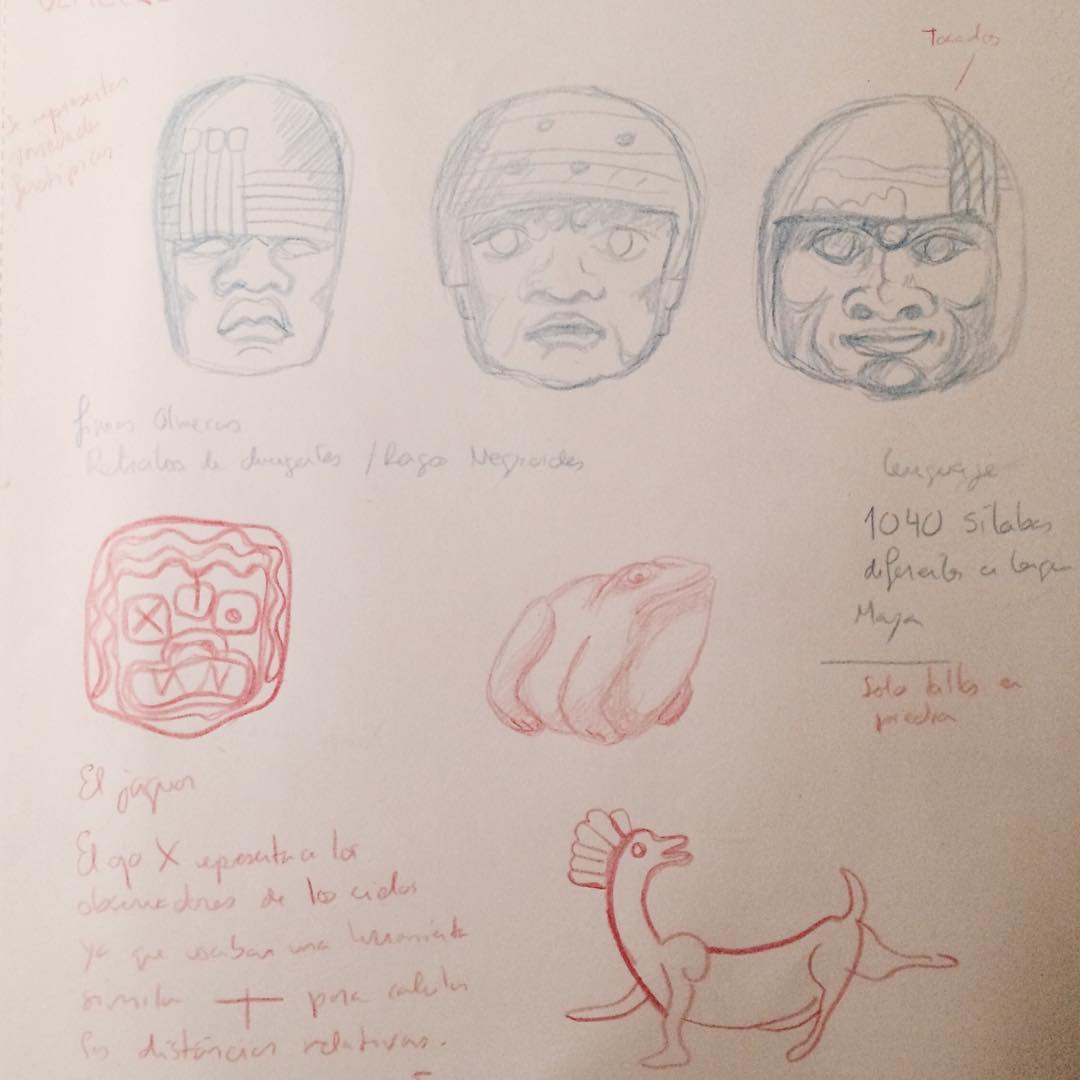 Tocados
Olmecas
Retratos de dirigentes / Rasgos Negroides
Lenguaje
1040 Sílabas
diferentes a lengua
Maya
Solo tallas en
piedra
El jaguar
El ojo X representa a los
observadores de los cielos
ya que usaban una herramienta
similar + para calcular
las distáncias relativas.